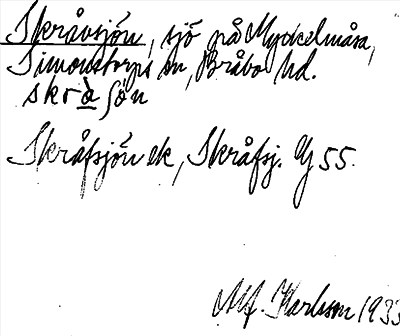 Skråvsjön, sjö på Myckelmåsa,
Simonstorps sn, Bråbo hd.
skrà ʃön
Skråfsjön ek, Skråfsj. G 55.
Alf. Karlsson 1933